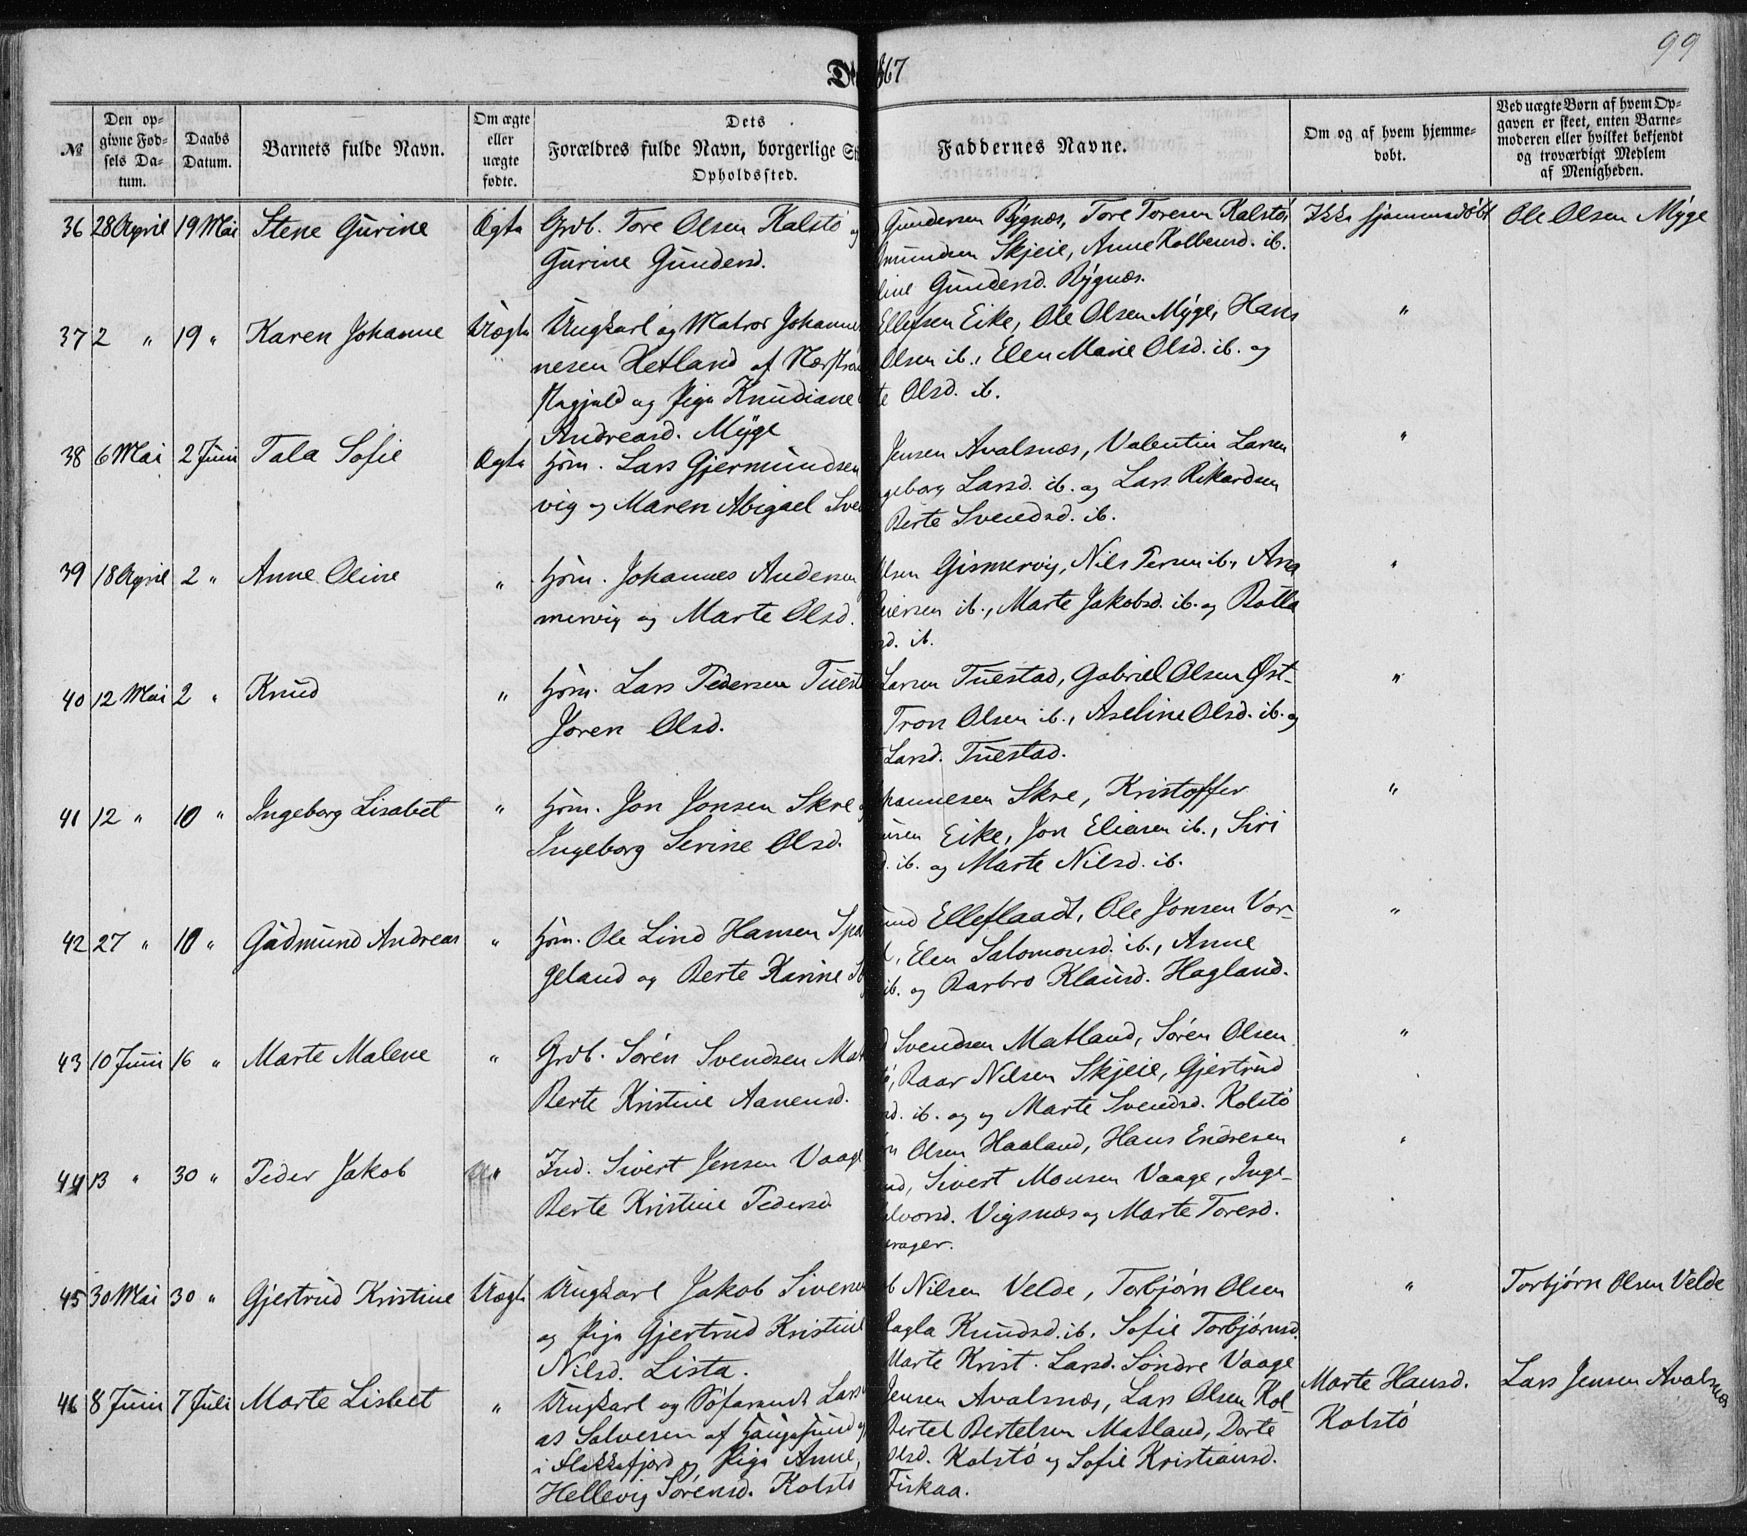 99
67
№
Den op-
givne Fød-
sels Da-
tum.
Daabs
Datum.
Barnets fulde Navn.
Om ægte
eller
uægte
fødte.
Dets
Forældres fulde Navn, borgerlige
Opholdssted.
Faddernes Navne.
Om og af hvem hjemme-
døbt.
Ved uægte Børn af hvem Op-
gaven er skeet, enten Barne-
moderen eller hvilket bekjendt
og troværdigt Medlem
af Menigheden.
36 28 April 19 Mai Stene Gurine Ægte Grdb. Tore Olsen Kalstø og
Gurine Gundersd.
Gundersen Rygnæs, Tore Toresen Kalstø,
mundsen Skjeie, Anne Kolbensd. ib.
line Gundersd. Rygnæs.
Ikke hjemmedøbt Ole Olsen Myge
37 2 " 19 " Karen Johanne Uægte Ungkarl og Matros Johanne
nesen Hetland af Nærstra
og Pige Knudiane
Andreasd. Myge
Ellefsen Eike, Ole Olsen Myge, Hans
Olsen ib., Elen Marie Olsd. ib. og
te Olsd. ib.
"
38 6 Mai 2 Juni Tala Sofie Ægte Hsm. Lars Gjermundsen
vig og Maren Abigael Sve
Jensen Avalsnæs, Valentin Larsen
geborg Larsd. ib. og Lars Rikardsen
Berte Svendsd. ib.
"
39 18 April 2 " Anne Oline " Hsm. Johannes Andersen
mervig og Marte Olsd.
Olsen Gismervig, Nils Persen ib.,
ib., Marte Jakobsd. ib. og
sd. ib.
"
40 12 Mai 2 " Knud " Hsm. Lars Pedersen Tuest
Joren Olsd.
Larsen Tuestad, Gabriel Olsen Øst-
Tron Olsen ib., Aseline Olsd. ib. og
Larsd. Tuestad.
"
41 12 " 10 " Ingeborg Lisabet " Hsm. Jon Jonsen Skre
Ingeborg Serine Olsd.
hannesen Skre, Kristoffer
Eike, Jon Eliasen ib., Siri
d. ib. og Marte Nilsd. ib.
"
42 27 " 10 " Gudmund Andreas " Hsm. Ole Lind Hansen Spa
geland og Berte Karine
und Elleflaadt, Ole Jonsen Vor-
Elen Salomonsd. ib., Anne
ib. og Barbro Klausd. Hagland.
"
43 10 Juni 16 " Marte Malene " Grdb. Sørén Svendsen Mat
Berte Kristine Aanensd.
Svendsen Matland, Søren Olsen
Baar Nilsen Skjeie, Gjertrud
sd. ib. og og Marte Svendsd. Kolstø
"
44 13 " 30 " Peder Jakob " Ind. Sivert Jensen Vaage
Berte Kristine Pedersd
Olsen Haaland, Hans Endresen
Sivert Monsen Vaage, Inge-
Vigsnæs og Marte Toresd.
"
45 30 Mai 30 " Gjertrud Kristine Uægte Ungkarl Jakob Sivense
og Pige Gjertrud Kristine
Nilsd. Lista.
Nilsen Velde, Torbjørn Olsen
Ragla Knudsd. ib. Sofie Torbjørnsd.
Marte Krist. Larsd. Søndre Vaage
" Torbjørn Olsen Velde
46 8 Juni 7 Juli Marte Lisbet " Ungkarl og Søfarende Lars
as Salvesen af Haugesund
i Flekkefjord og Pige Anne
Hellevig Sørensd. Kolstø
Jensen Avalsnæs, Lars Olsen Kol-
Bertel Bertelsen Matland, Dorte
Olsd. Kolstø og Sofie Kristiansd.
Fiskaa.
Marte Hansd.
Kolstø
Lars Jensen Avalsnæs